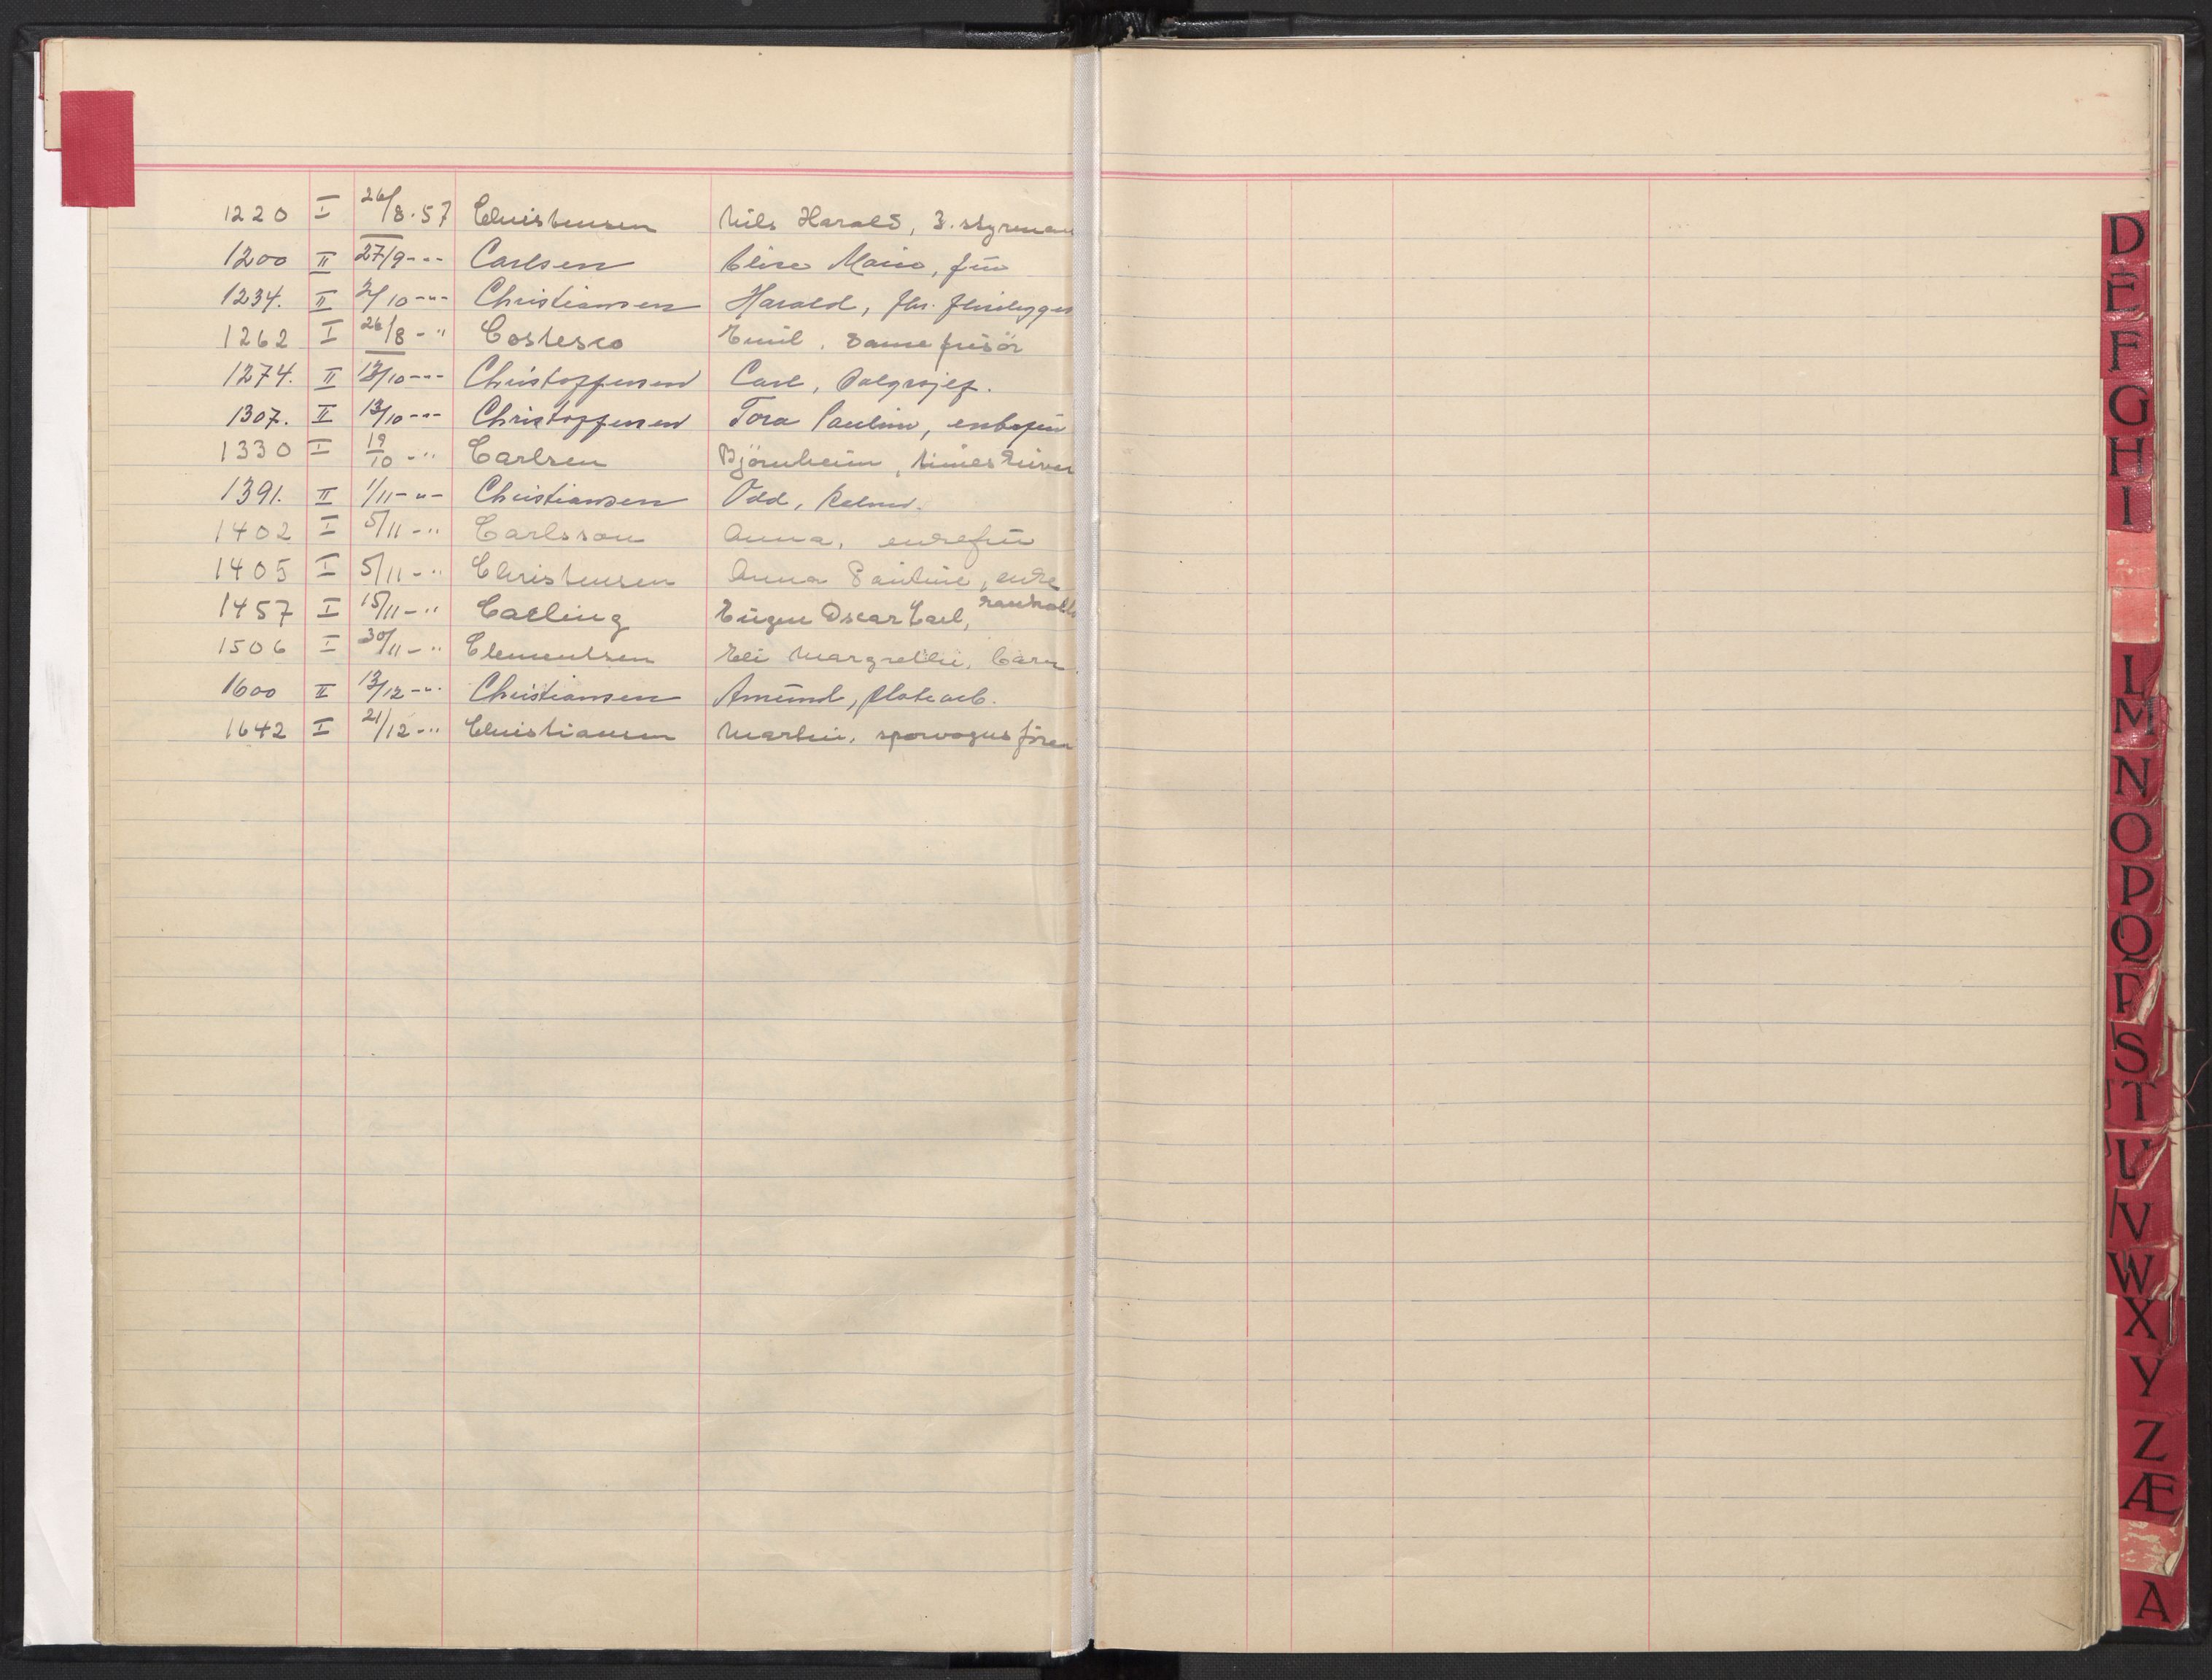 1220 I 26/8.57 Christensen Nils Harald, 3. styrman
1200 II 27/9 -"- Carlsen Elise Marie, frü
1234. II 2/10 -"- Christiansen Harald, fhv.
1262 I 26/8 - " Costesco Emil, Damefrisör
1274. II 12/10 -"- Christoffersen Carl, Salgssjef.
1307. II 13/10 -"- Christoffersen Tora Pauline, enkefrü
1330 I 19/10 - " Carlsen Björnheim,
1391. II 1/11 -"- Christiansen Odd, Kelner.
1402 I 5/11 - " Carlsson Anna, enkefrü
1405 I 5/11 - " Christensen Anna Pauline, enke
1457 I 15/11 - " Carling Eügen Oscar Carl,
1506 I 30/11 - " Clementsen Eli Margrethe, barn
1600 II 13/12 -"- Christiansen Amünd, platearb.
1642 I 21/12 - " Christiansen Martin, sporvognsförer
D
E
F
G
H
I
L
M
N
O
P
Q
R
S
T
U
V
W
X
Y
Z
Æ
A